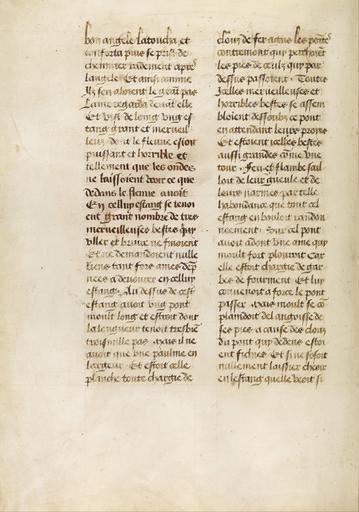 bon angele latoucha et
conforta puis se prist de
cheminer radement apres
langele Et ainsi comme
Ilz sen aloient le grant pas
Lame regarda deuant elle
Et vist de loing ung es
tang grant et merueil
leux dont le fleuue estoit
puissant et horrible et
tellement que les ondes
ne laissoient veoir ce que
dedans le fleuue auoit
En cellui estang se tenoi
ent grant nombre de tres
merueilleuses bestes qui
vller et braire ne finoient
Et ne demandoient nulle
riens tant fors ames dep
nees a deuourer en cellui
estang Au dessus de cest
estang auoit ung pont
moult long et estroit dont
la longueur tenoit tresbien
trois mille pas mais il ne
auoit que une paulme en
largeur Et estoit celle
planche toute chargie de
cloux de fer agus les pointes
contremont qui perchoient
les pies de ceulx qui par
dessus passoient Toutes
Icelles merueilleuses et
horribles bestes se assem
bloient dessoubz ce pont
en attendant leurs proies
Et estoient icelles bestes
aussi grandes comme une
tour Feu et flambe sail
loit de leur gueule et de
leurs narines par telle
habondance que tout cel
estang en bouloit randon
neement Sur cel pont
auoit adont une ame qui
moult fort plouroit Car
elle estoit chargie de gar
bes de fourment Et luy
conuenoit a force le pont
passer mais moult se co
plaindoit del angoisse de
ses pies a cause des cloux
du pont qui dedens estoi
ent fichies Et si ne sosoit
nullement laissier cheoir
en lestang quelle veoit si